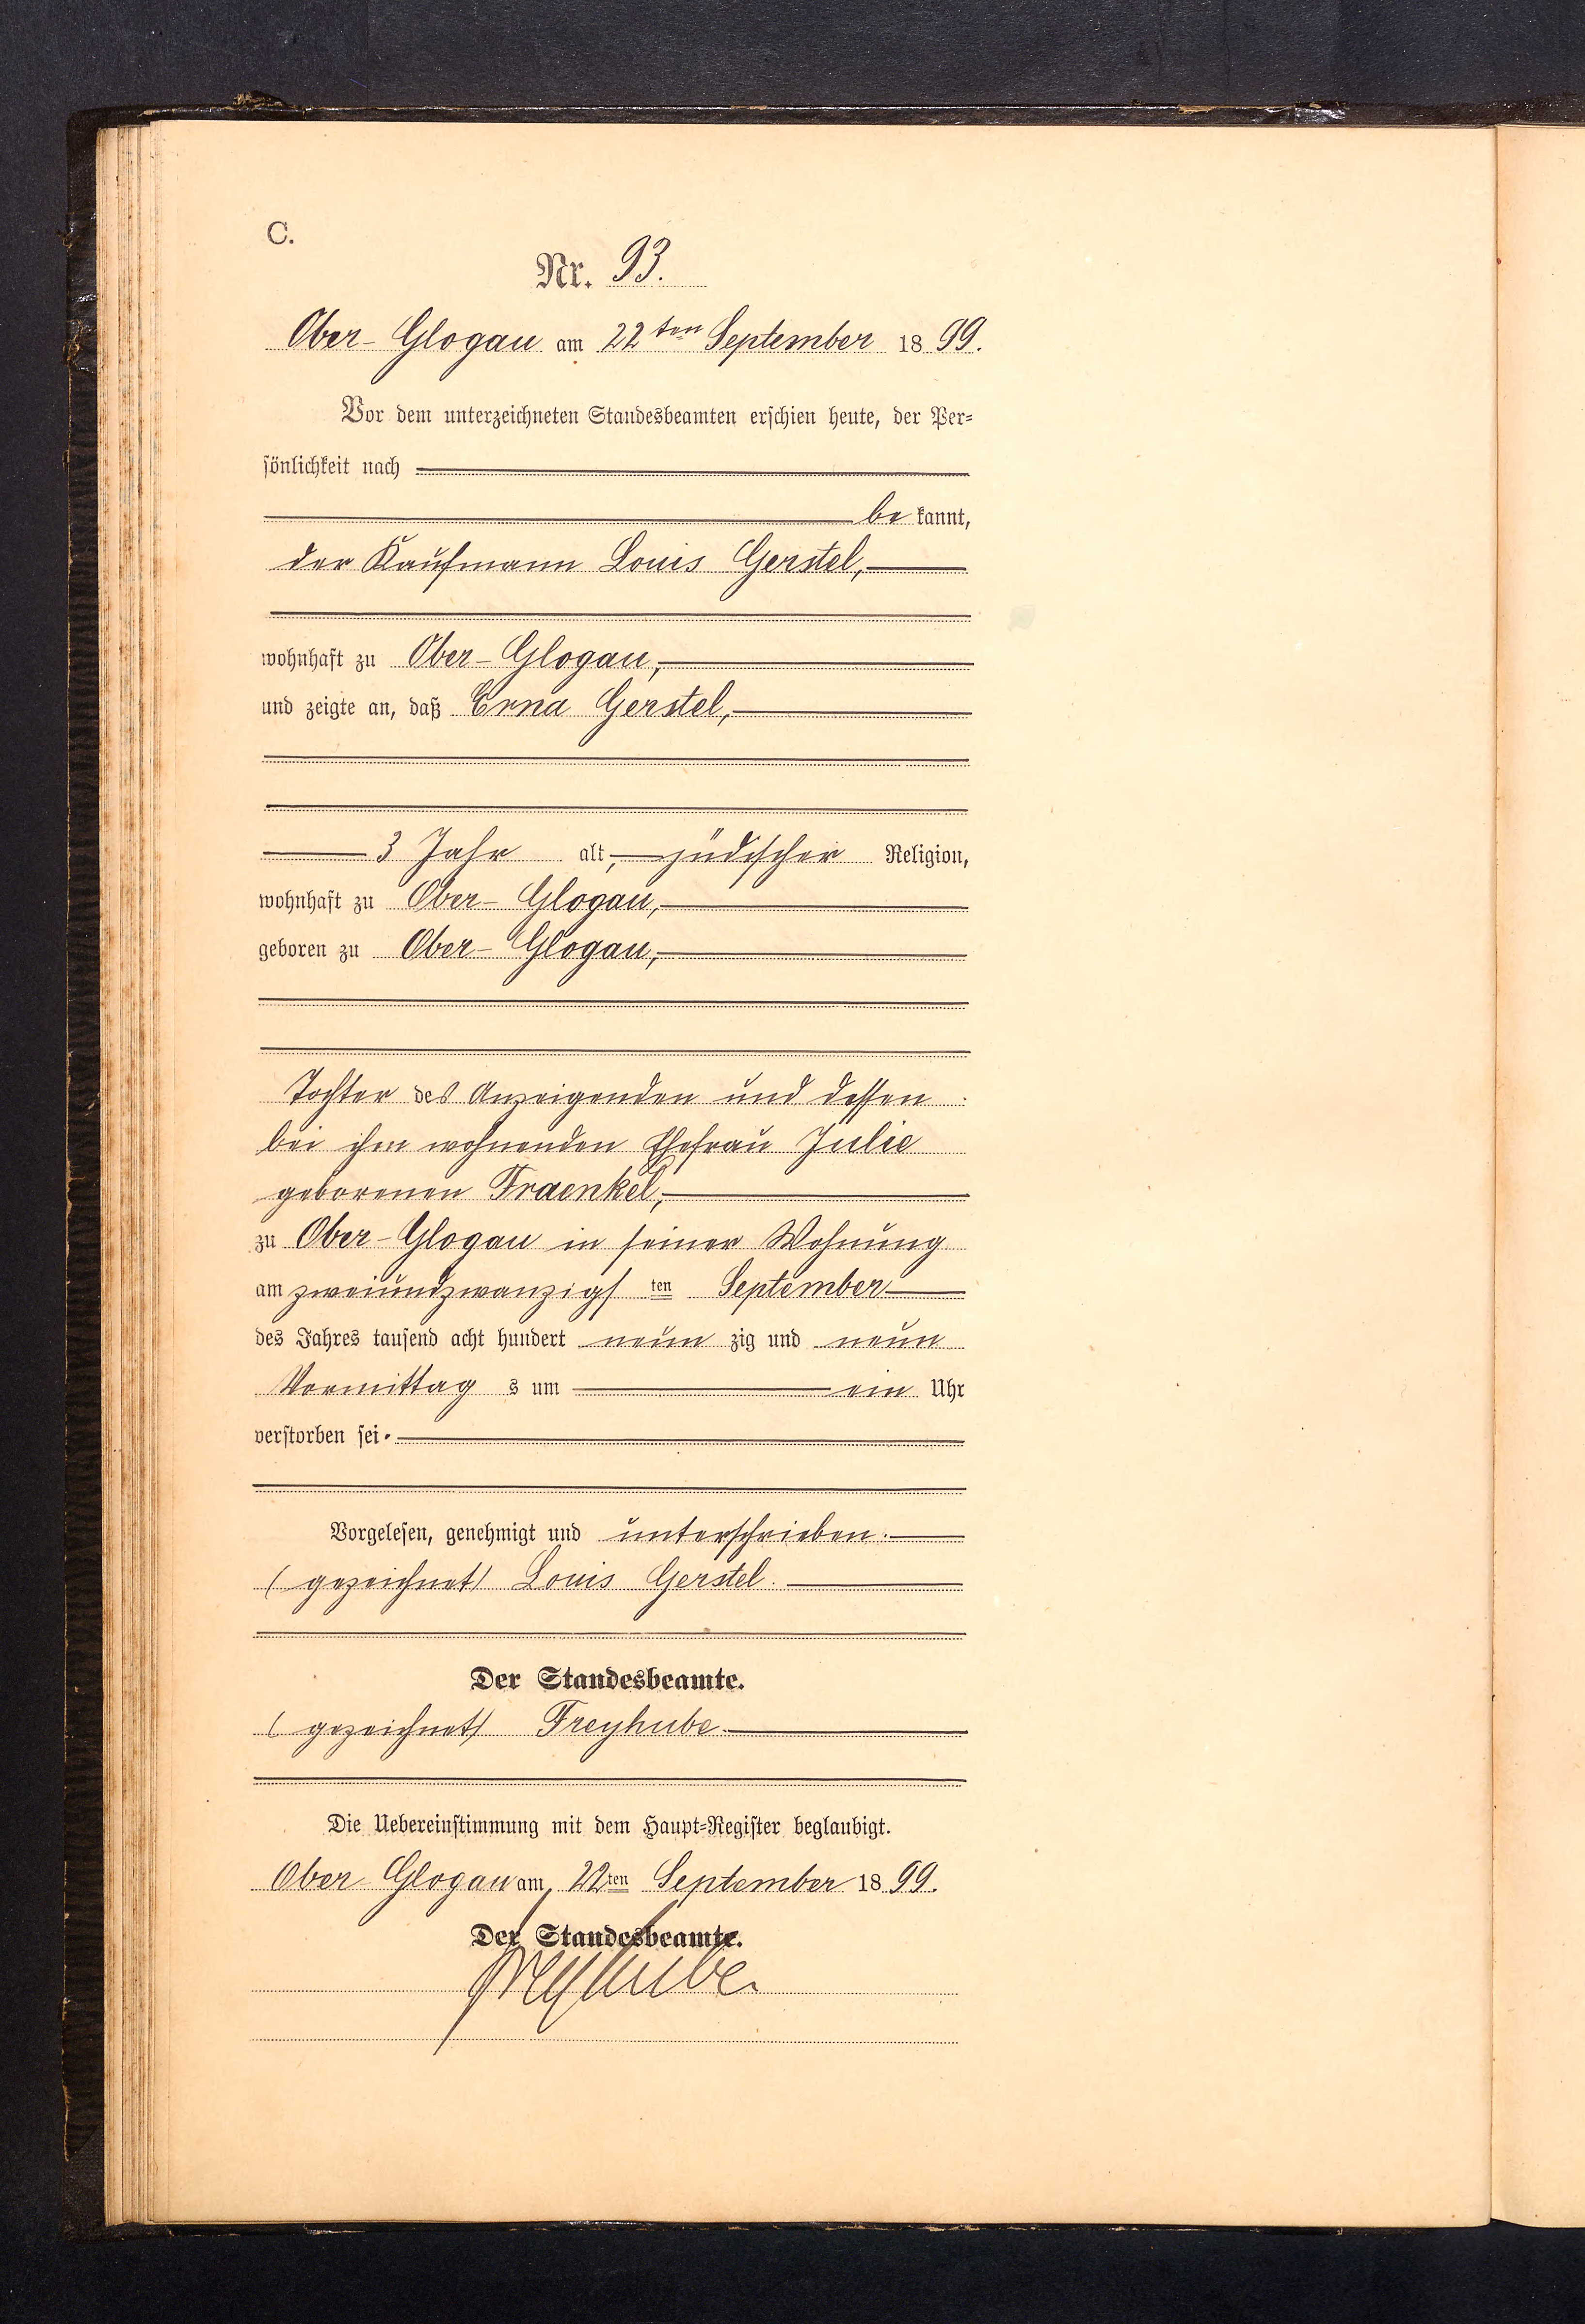 C.
Nr. 93.
Ober-Glogau am 22ten September 1899.
Vor dem unterzeichneten Standesbeamten erschien heute, der Per-
sönlichkeit nach
bekannt,
der Kaufmann Louis Gerstel,
wohnhaft zu Ober-Glogau,
und zeigte an, daß Erna Gerstel,
3 Jahr alt, jüdischer Religion,
wohnhaft zu Ober-Glogau,
geboren zu Ober-Glogau,
Tochter des Anzeigenden und dessen
bei ihm wohnenden Ehefrau Julie
geborenen Fraenkel,
zu Ober-Glogau in seiner Wohnung
am zweiundzwanzigsten September
des Jahres tausend acht hundert neunzig und neun
Vormittags um ein Uhr
verstorben sei.
Vorgelesen, genehmigt und unterschrieben.
(gezeichnet) Louis Gerstel.
Der Standesbeamte.
(gezeichnet) Freyhube.
Die Uebereinstimmung mit dem Haupt-Register beglaubigt.
Ober-Glogau am 22ten September 1899.
Der Standesbeamte.
Freyhube